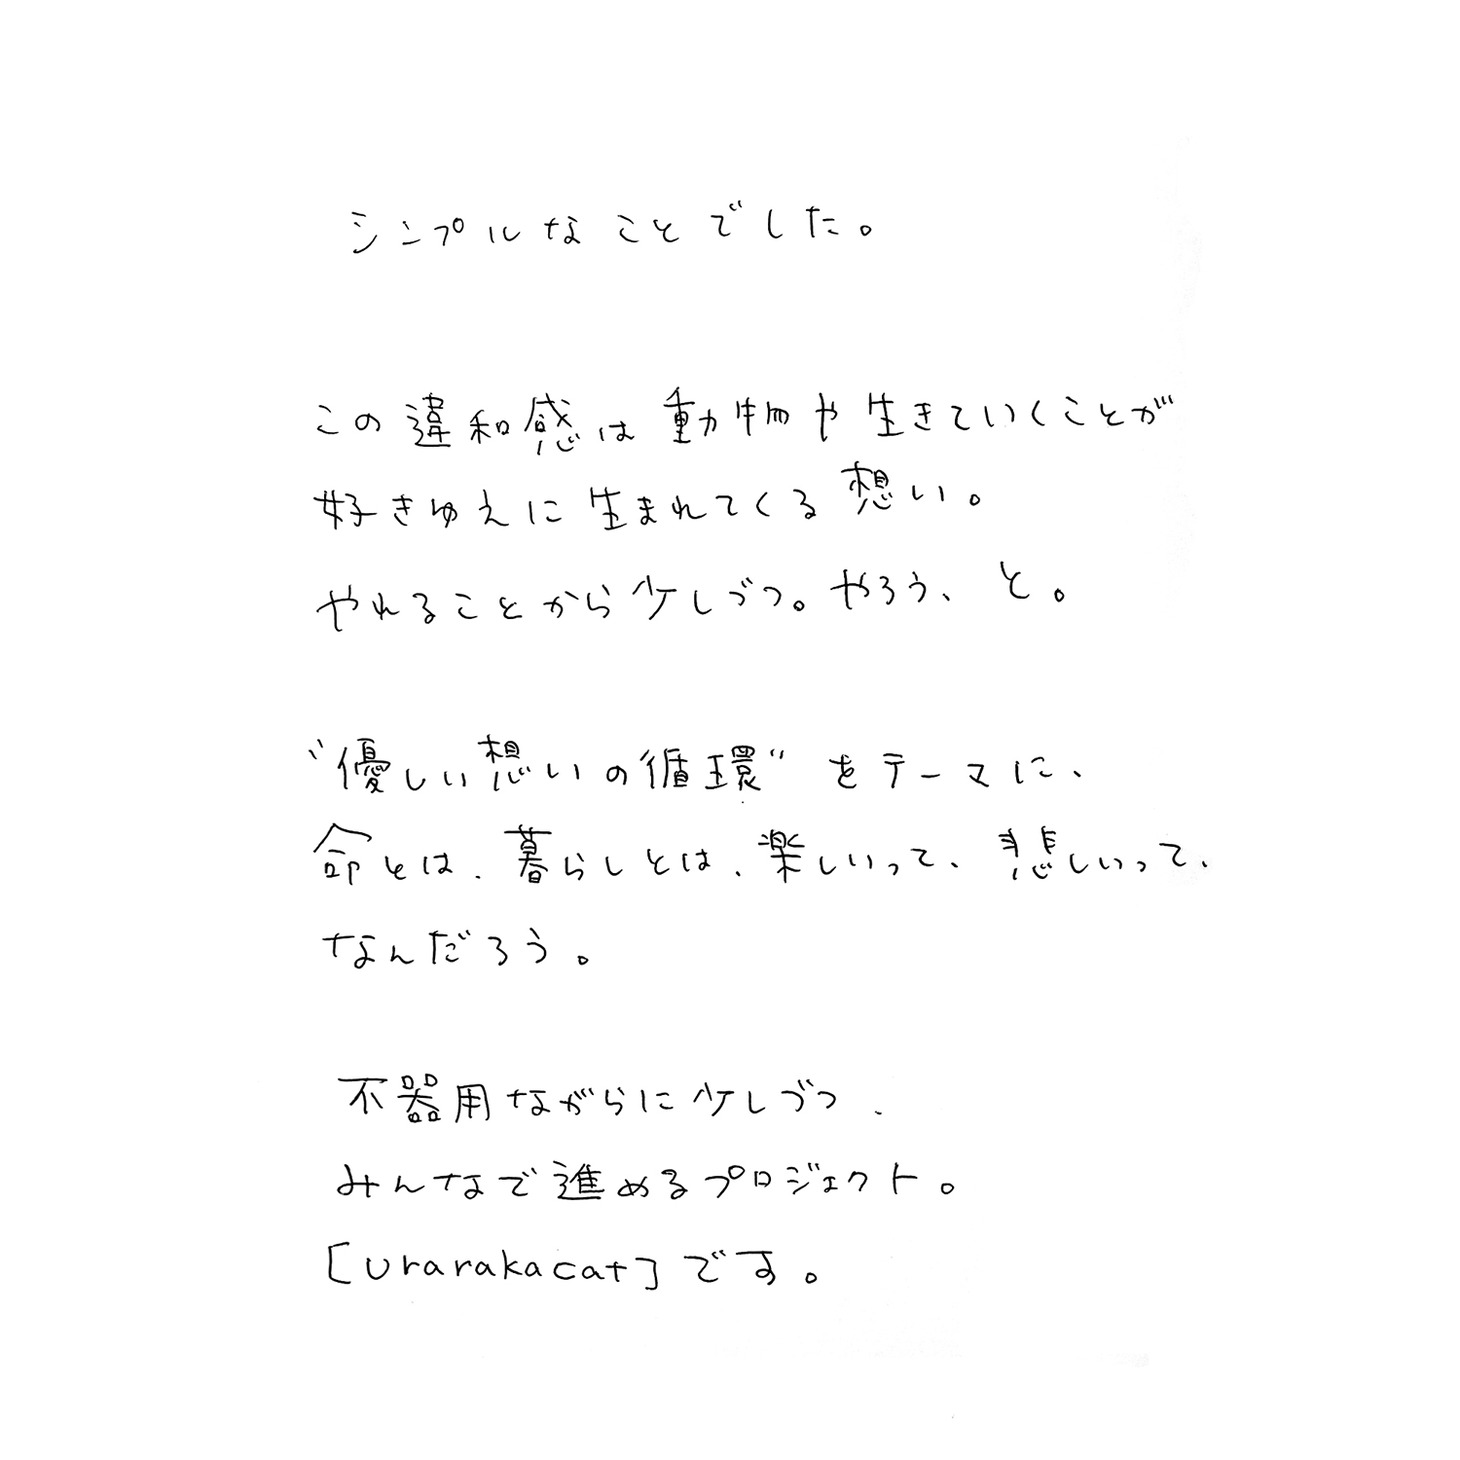 シンプルなことでした。
この違和感は動物や生きていくことが
好きゆえに生まれてくる想い。
やれることから少しづつ。やろう、と。
“優しい想いの循環”をテーマに、
命とは、暮らしとは、楽しいって、悲しいって、
なんだろう。
不器用ながらに少しづつ、
みんなで進めるプロジェクト。
[urarakacat]です。